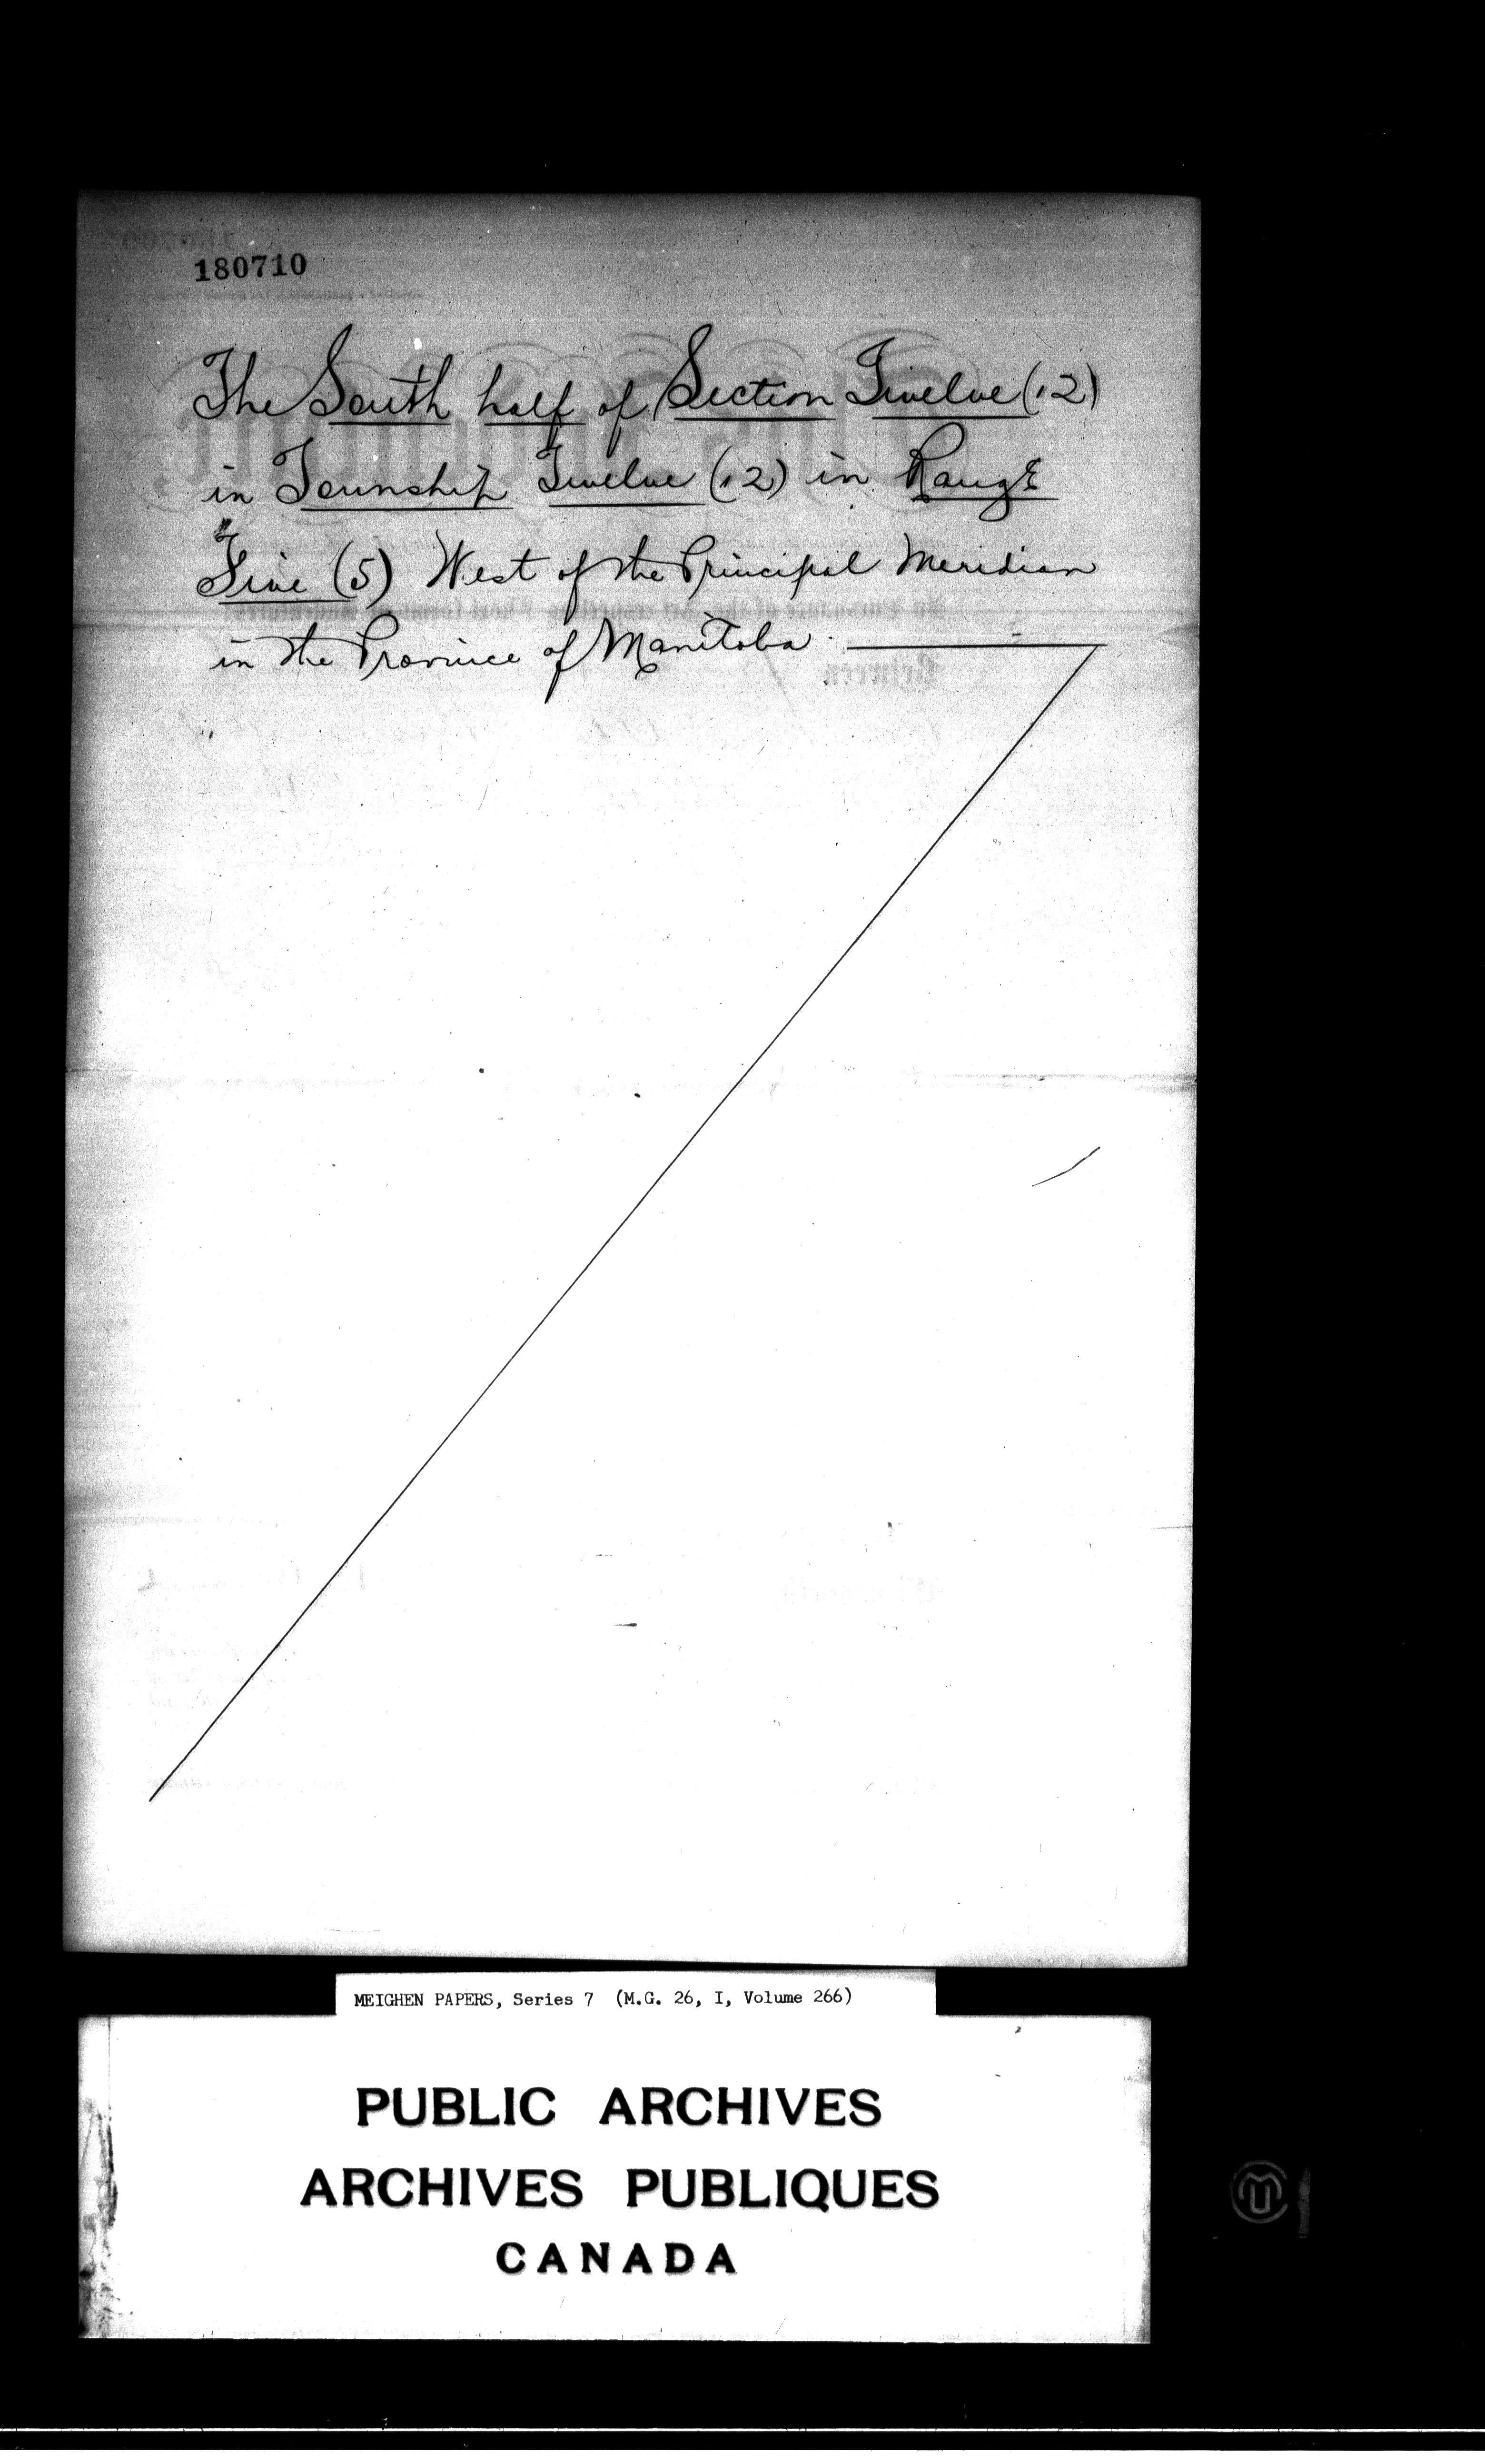 180710
The South half of Section Twelve (12)
in Township Twelve (12) in Range
Five (5) West of the Principal Meridian
in the Province of Manitoba
MEIGHEN PAPERS, Series 7 (M.G. 26, I, Volume 266)
PUBLIC ARCHIVES
ARCHIVES PUBLIQUES
CANADA